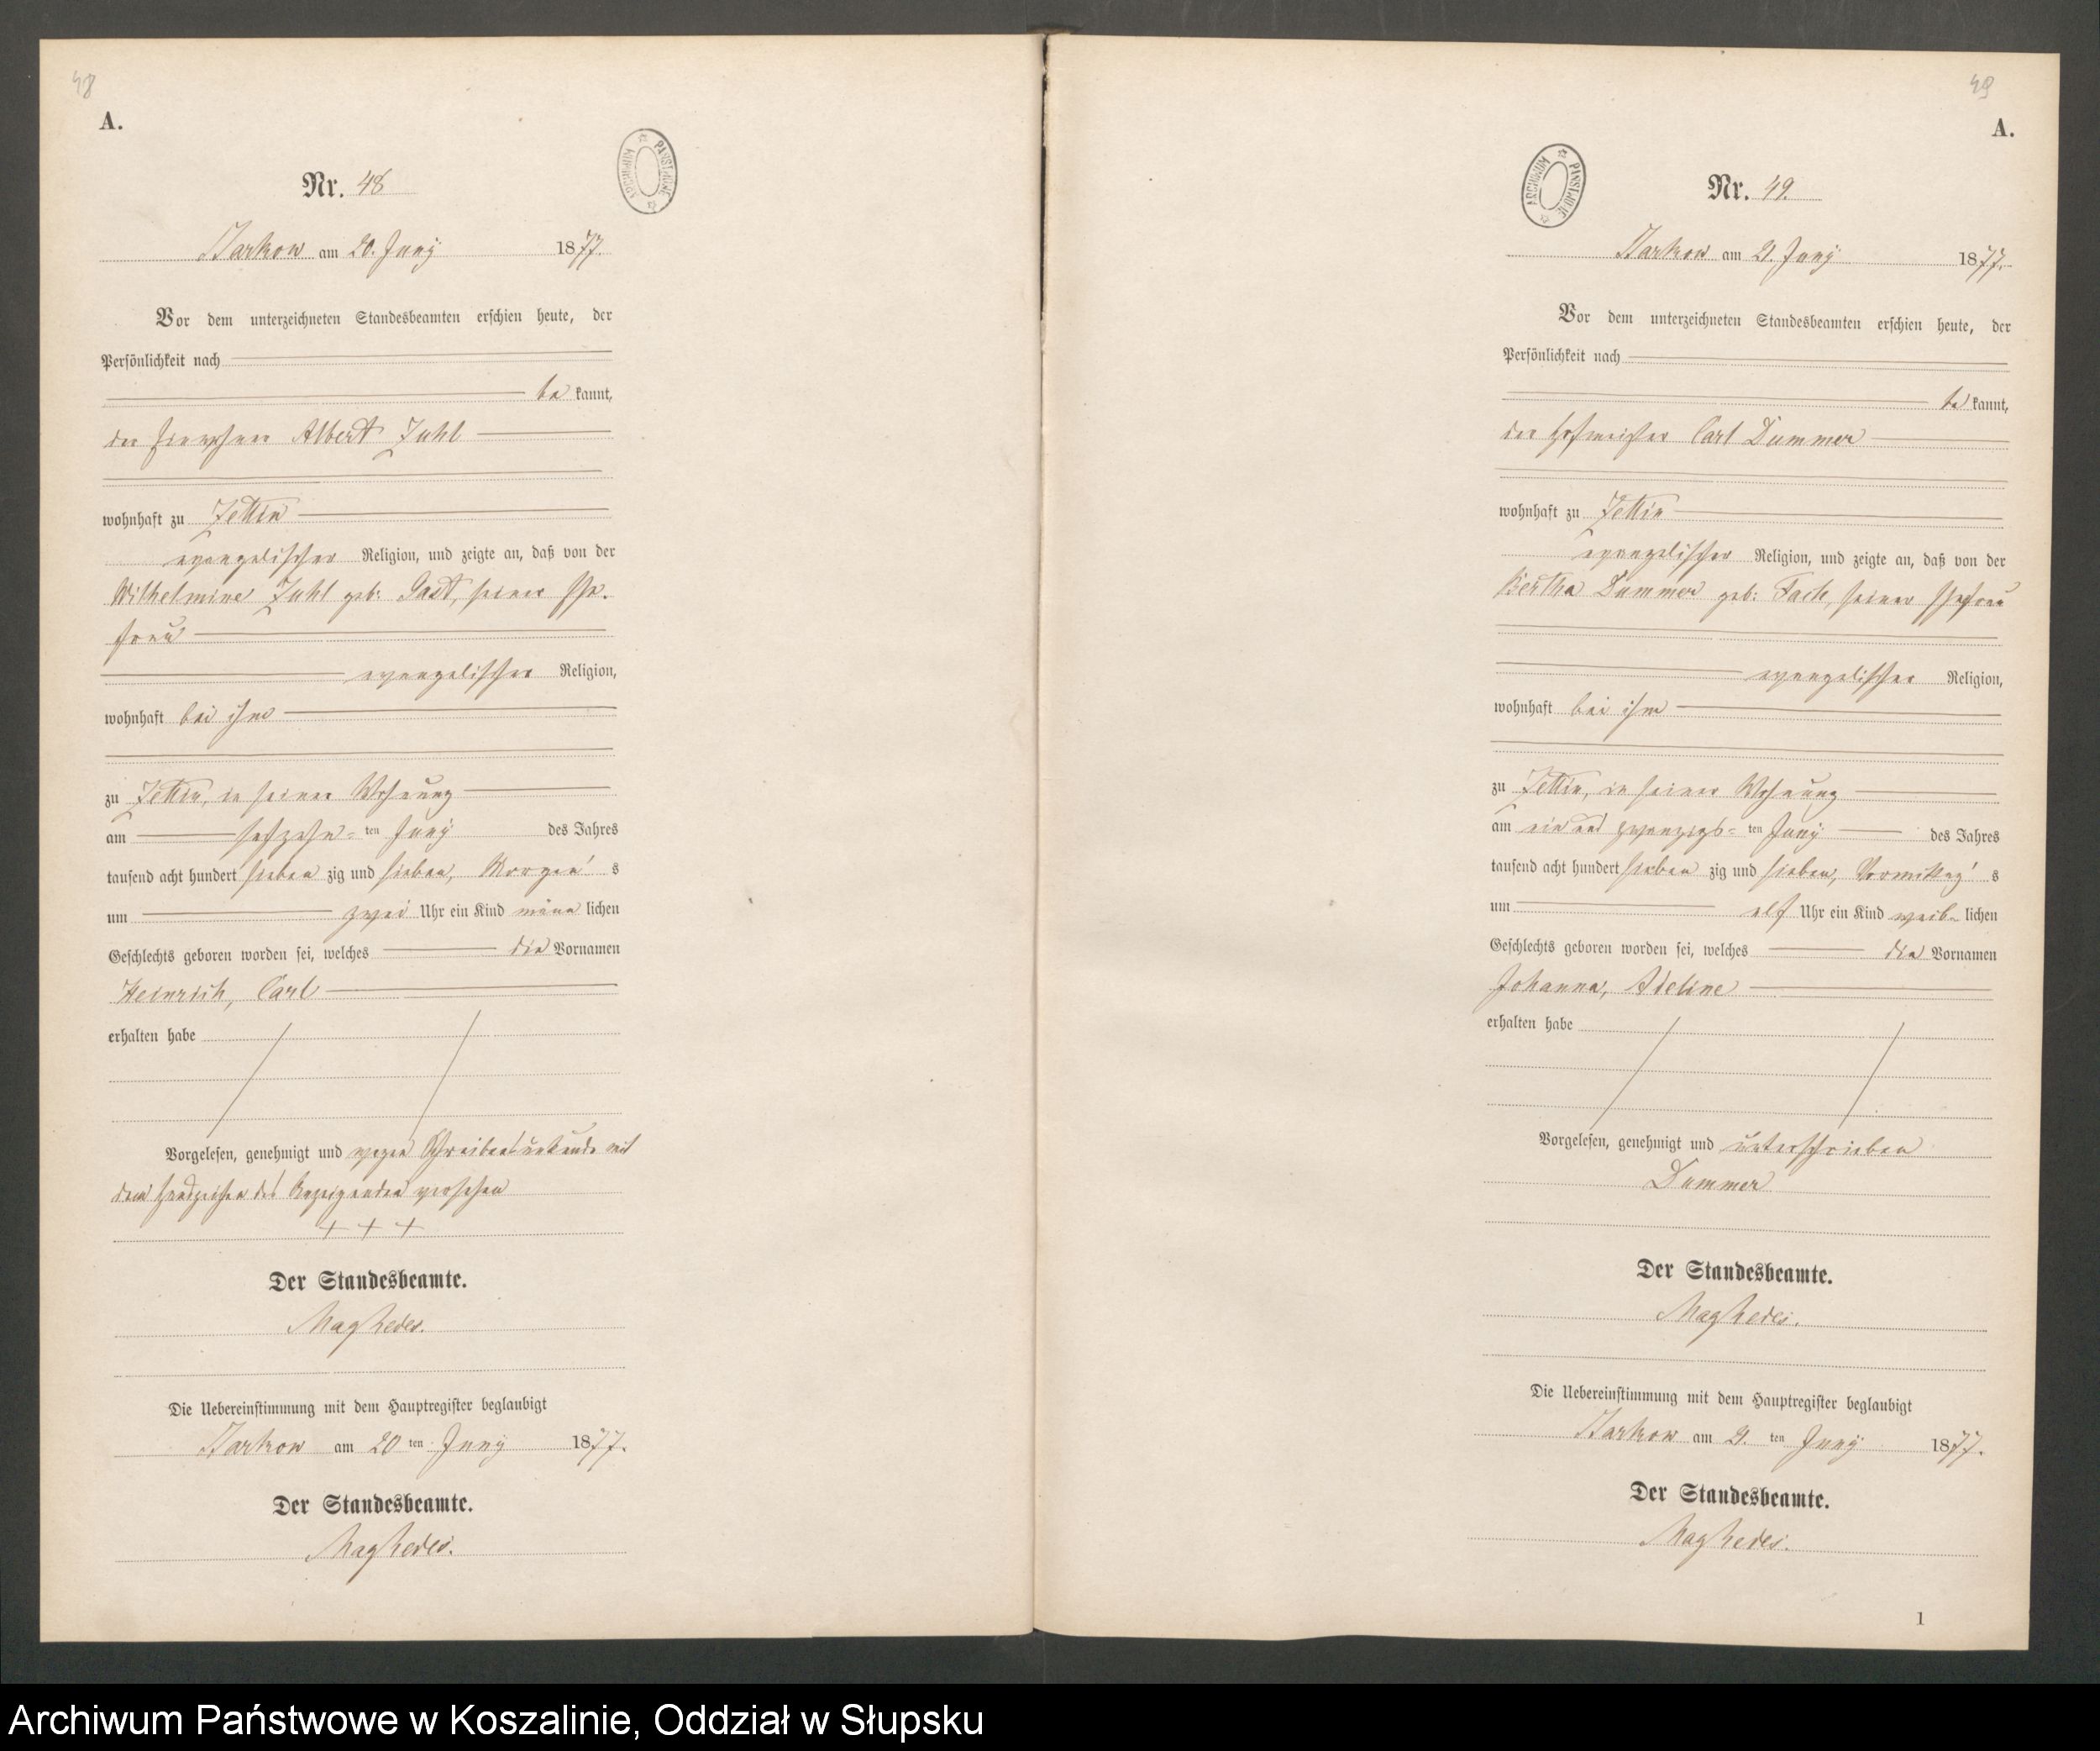 48
A.
ARCHIWUM PAŃSTWOWE
Nr. 48
Starkow am 20. Juny 1877.
Vor dem unterzeichneten Standesbeamten erschien heute, der
Persönlichkeit nach
be kannt,
der Albert Zuhl
wohnhaft zu Zettin
evangelischer Religion, und zeigte an, daß von der
Wilhelmine Zuhl geb: Gast, seiner Ehe-
frau
evangelischer Religion,
wohnhaft bei ihm
zu Zettin, in seiner Wohnung
am sechzehn- ten Juny des Jahres
tausend acht hundert sieben zig und sieben, Morgen s
um zwei Uhr ein Kind männ lichen
Geschlechts geboren worden sei, welches die Vornamen
Heinrich, Carl
erhalten habe
Vorgelesen, genehmigt und wegen Schreibensunkunde mit
dem Handzeichen des Anzeigenden versehen
+ + +
Der Standesbeamte.
Die Uebereinstimmung mit dem Hauptregister beglaubigt
Starkow am 20 ten Juny 1877.
Der Standesbeamte.
49
A.
ARCHIWUM PAŃSTWOWE
Nr. 49.
Starkow am 21. Juny 1877.
Vor dem unterzeichneten Standesbeamten erschien heute, der
Persönlichkeit nach
be kannt,
der Hofmeister Carl Dummer
wohnhaft zu Zettin
evangelischer Religion, und zeigte an, daß von der
Bertha Dummer geb: Fach, seiner Ehefrau
evangelischer Religion,
wohnhaft bei ihm
zu Zettin, in seiner Wohnung
am ein und zwanzigs- ten Juny des Jahres
tausend acht hundert sieben zig und sieben, Vormittag s
um elf Uhr ein Kind weib- lichen
Geschlechts geboren worden sei, welches die Vornamen
Johanna, Adeline
erhalten habe
Vorgelesen, genehmigt und unterschrieben
Dummer
Der Standesbeamte.
Die Uebereinstimmung mit dem Hauptregister beglaubigt
Starkow am 21. ten Juny 1877.
Der Standesbeamte.
1
Archiwum Państwowe w Koszalinie, Oddział w Słupsku